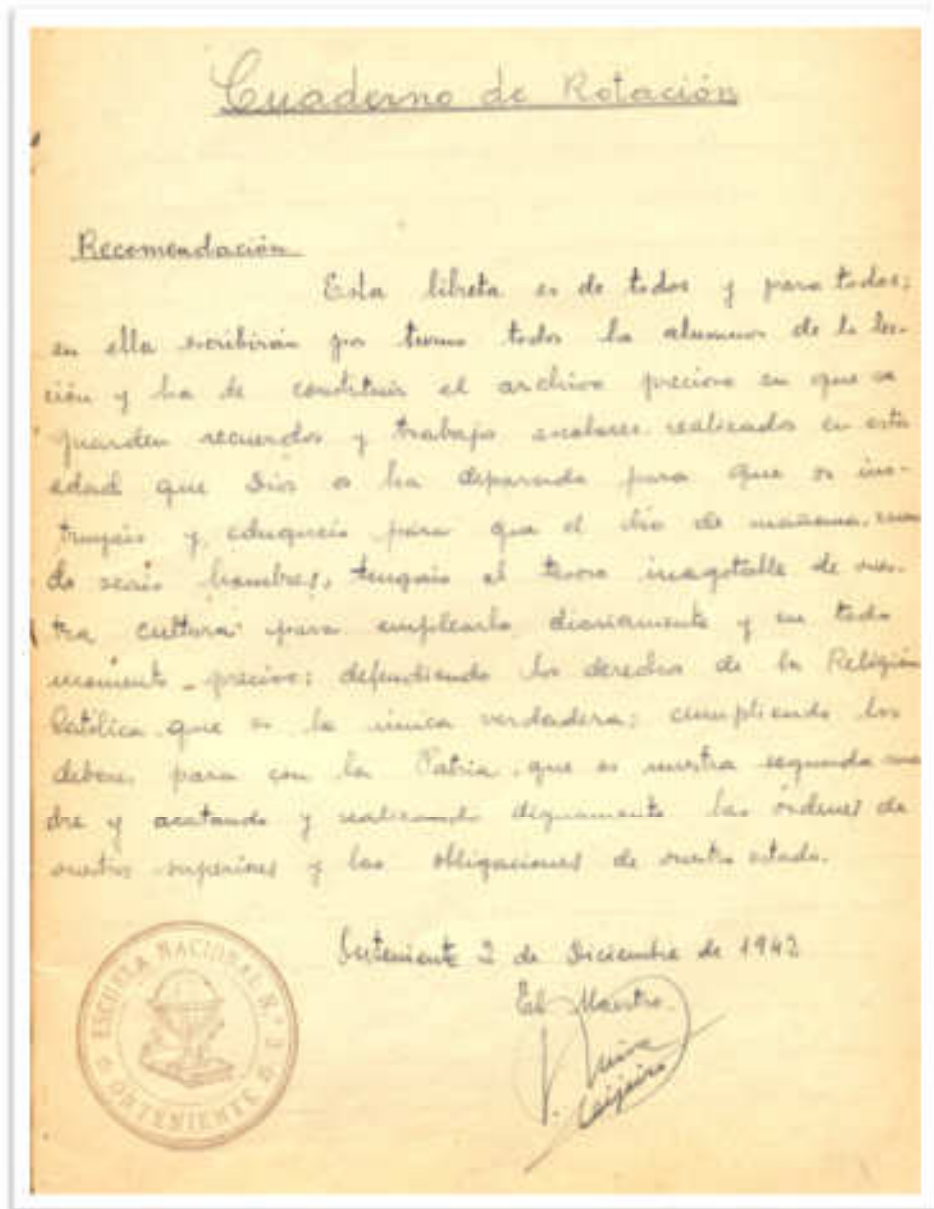 Cuaderno de Rotación
Recomendación
Esta libreta es de todos y para todos;
en ella escribirán por turno todos los alumnos de la Sec-
ción y ha de constituir el archivo precioso en que se
guarden recuerdos y trabajos escolares realizados en esta
edad que Dios os ha deparado para que os ins-
truyais y eduqueis para que el día de mañana, cuan
do seais hombres, tengais el tesoro inagotable de vues-
tra cultura para emplearlo diariamente y en todo
momento preciso; defendiendo los derechos de la Religión
Católica que es la única verdadera; cumpliendo los
deberes para con la Patria que es nuestra segunda ma
dre y acatando y realizando dignamente las órdenes de
vuestros superiores y las obligaciones de vuestro estado.
Onteniente 2 de Diciembre de 1942
El Maestro
ESCUELA NACIONAL N.º
ONTENIENTE